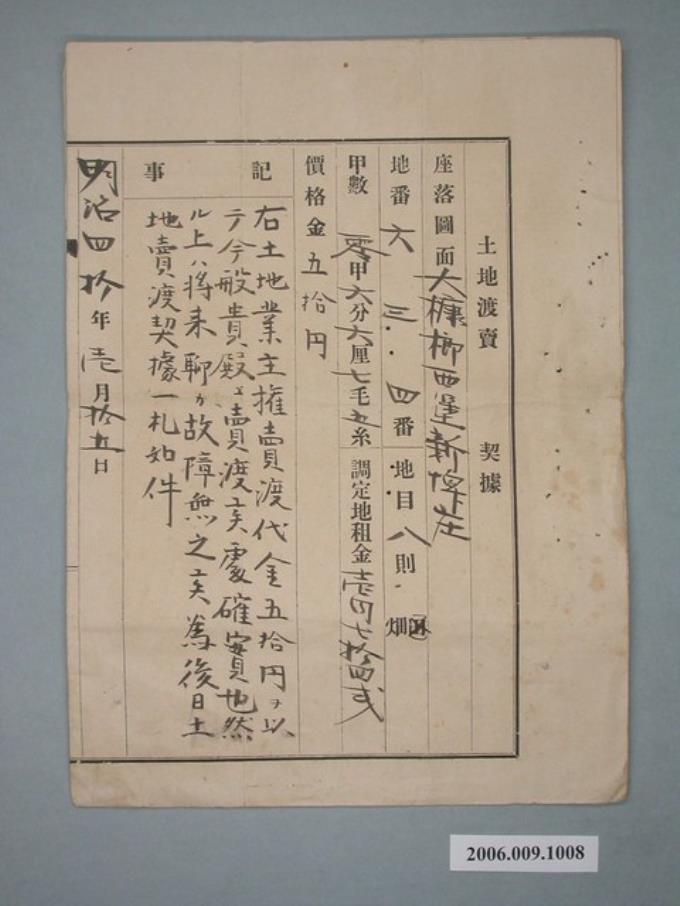 土地渡賣契據
座落圖面大槺榔西堡新埤庄
地番六三.四番地目八則.畑
甲數零甲六分六厘七毛五糸調定地租金壱円七拾四戋
價格金五拾円
記事
右土地業主権賣渡代金五拾円ヲ以
テ今般貴殿ヱ賣渡実處確實也然
ル上ハ將来聊カ故障無之実為後日土
地賣渡契據一札如件
明治四拾年壱月拾五日
2006.009.1008